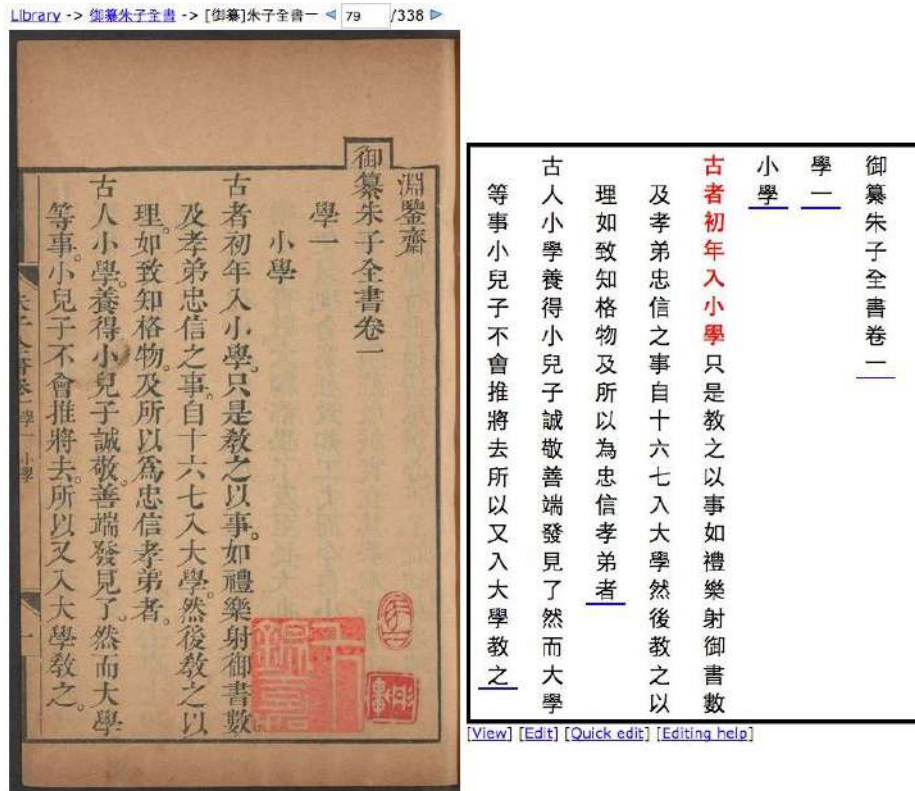 Library -> 御纂朱子全書 -> [御纂]朱子全書一 79 /338
淵鑒齋
御纂朱子全書卷一
學一
小學
古者初年入小學。只是敎之以事。如禮樂射御書數
及孝弟忠信之事。自十六七入大學。然後敎之以
理。如致知格物。及所以爲忠信孝弟者。
古人小學。養得小兒子誠敬善端發見了。然而大學
等事。小兒子不會推將去。所以又入大學敎之。
朱子全書卷一 學一 小學 一
御纂朱子全書卷一
學一
小學
古者初年入小學只是教之以事如禮樂射御書數
及孝弟忠信之事自十六七入大學然後教之以
理如致知格物及所以為忠信孝弟者
古人小學養得小兒子誠敬善端發見了然而大學
等事小兒子不會推將去所以又入大學教之
[View] [Edit] [Quick edit] [Editing help]